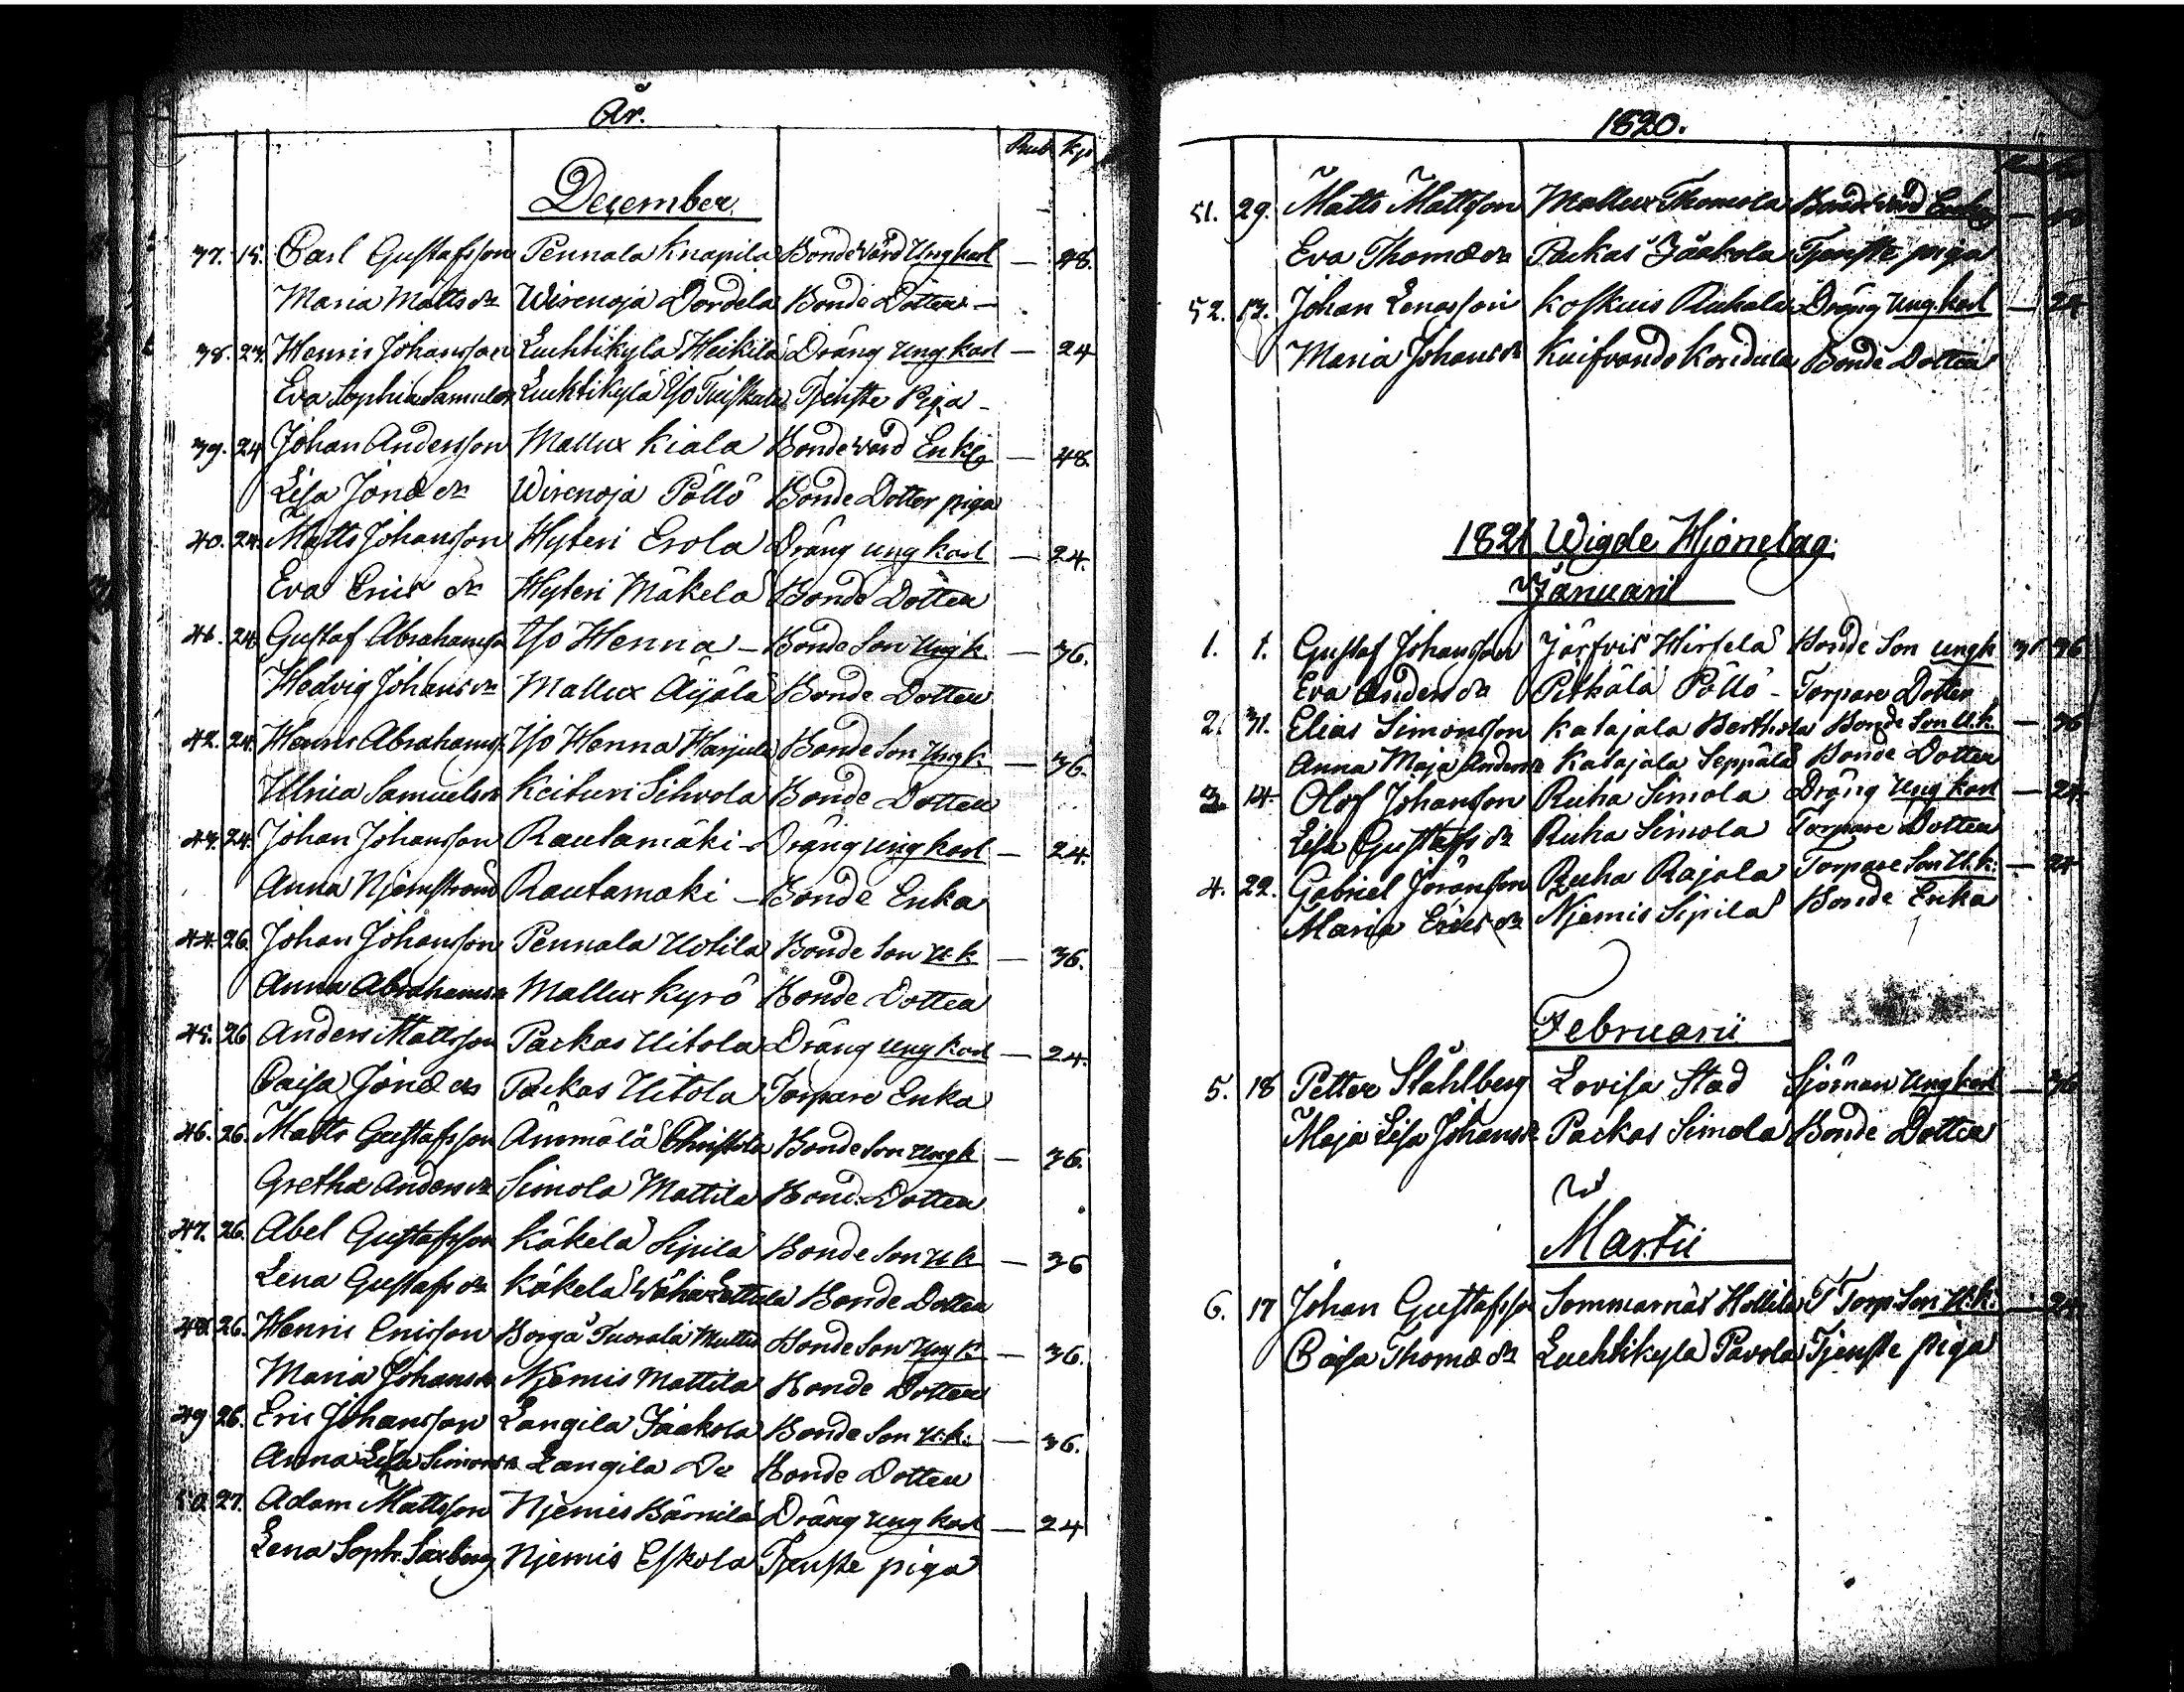 År.
Rub. kp.
December.
37. 15. Carl Gustafsson Pennala Knapila Bonde värd Ung karl — 48.
Maria Matts dr Wirenoja Dordela Bonde Dotter —
38. 24. Henric Johansson Luchtikylä Heikilä Dräng ung karl — 24
Eva Sophia Samuelsdr Luchtikylä Yso Tuiskula Tjenste Piga —
39. 24 Johan Andersson Mallux Kiala Bonde värd Enkl — 48.
Lisa Jonæ dr Wirenoja Pöllö Bonde Dotter piga
40. 24. Matts Johansson Hyteri Erola Dräng ung karl — 24.
Eva Erics dr Hyteri Mäkelä Bonde Dotter
41. 24 Gustaf Abrahamss Yso Henna — Bonde Son Ung k. — 36.
Hedvig Johans dr Mallux Äijälä Bonde Dotter
42. 24. Henric Abrahamss Yso Henna Harjula Bonde Son Ung k. — 36.
Ulrica Samuelsdr Keituri Sihvola Bonde Dotter
43. 24. Johan Johansson Rautamäki — Dräng ung karl — 24.
Anna Njemström Rautamäki — Bonde Enka
44. 26. Johan Johansson Pennala Uotila Bonde Son u.k. — 36.
Anna Abrahamsdr Mallux Kyrö Bonde Dotter
45. 26 Anders Mattsson Packas Uitola Dräng ung karl — 24.
Caisa Jonæ dr Packas Uitola Torpare Enka
46. 26. Matts Gustafsson Ämmälä Christola Bonde Son ung k — 36.
Gretha Anders dr Simola Mattila Bond. Dotter
47. 26. Abel Gustafsson Käkelä Sipilä Bonde Son u.k. — 36
Lena Gustafs dr Käkelä Wäha Lattula Bonde Dotter
48. 26. Henric Ericsson Borgå Tuorala Bonde Son Ung k. — 36.
Maria Johans dr Njemis Mattila Bonde Dotter
49 26. Eric Johansson Langila Jaakola Bonde Son u.k. — 36.
Anna Lisa Simonsdr Langila Do Bonde Dotter
50. 27. Adam Mattsson Njemis Bärnilä Dräng ung karl — 24
Lena Soph. Saxberg Njemis Eskola Tjenste piga
1820.
51. 29. Matts Mattsson Mallux Thomola Bonde värd Enkl —
Eva Thomæ dr Packas Jaakola Tjenste piga
52. Johan Enasson Koskuis Ruhala Dräng ung. karl — 24
Maria Johans dr Kuifvands Kondula Bonde Dotter
1821 Wigde Hjonelag.
Januarii
1. 1. Gustaf Johansson Järfvis Hirfelä Bonde Son ung k 36
Eva Anders dr Pitkälä Pöllö — Torpare Dotter
2. 31. Elias Simonsson Katajala Berthola Bonde Son u.k. — 36
Anna Maja Andersdr Katajala Seppälä Bonde Dotter
3 14. Olof Johansson Ruha Simola Dräng Ung karl — 24.
Lisa Gustafs dr Ruha Simola Torpare Dotter
4. 22. Gabriel Jöransson Ruha Rajala Torpare Son U.k. — 24
Maria Erics dr Njemis Sipilä Bonde Enka
Februarii
5. 18 Petter Ståhlberg Lovisa Stad Sjöman ung karl — 36
Maja Lisa Johansdr Packas Simola Bonde Dotter
Martii
6. 17 Johan Gustafsson Sommarnäs Hollila T Torp. Son U.k. — 24
Caisa Thomæ dr Luchtikylä Pavola Tjenste piga